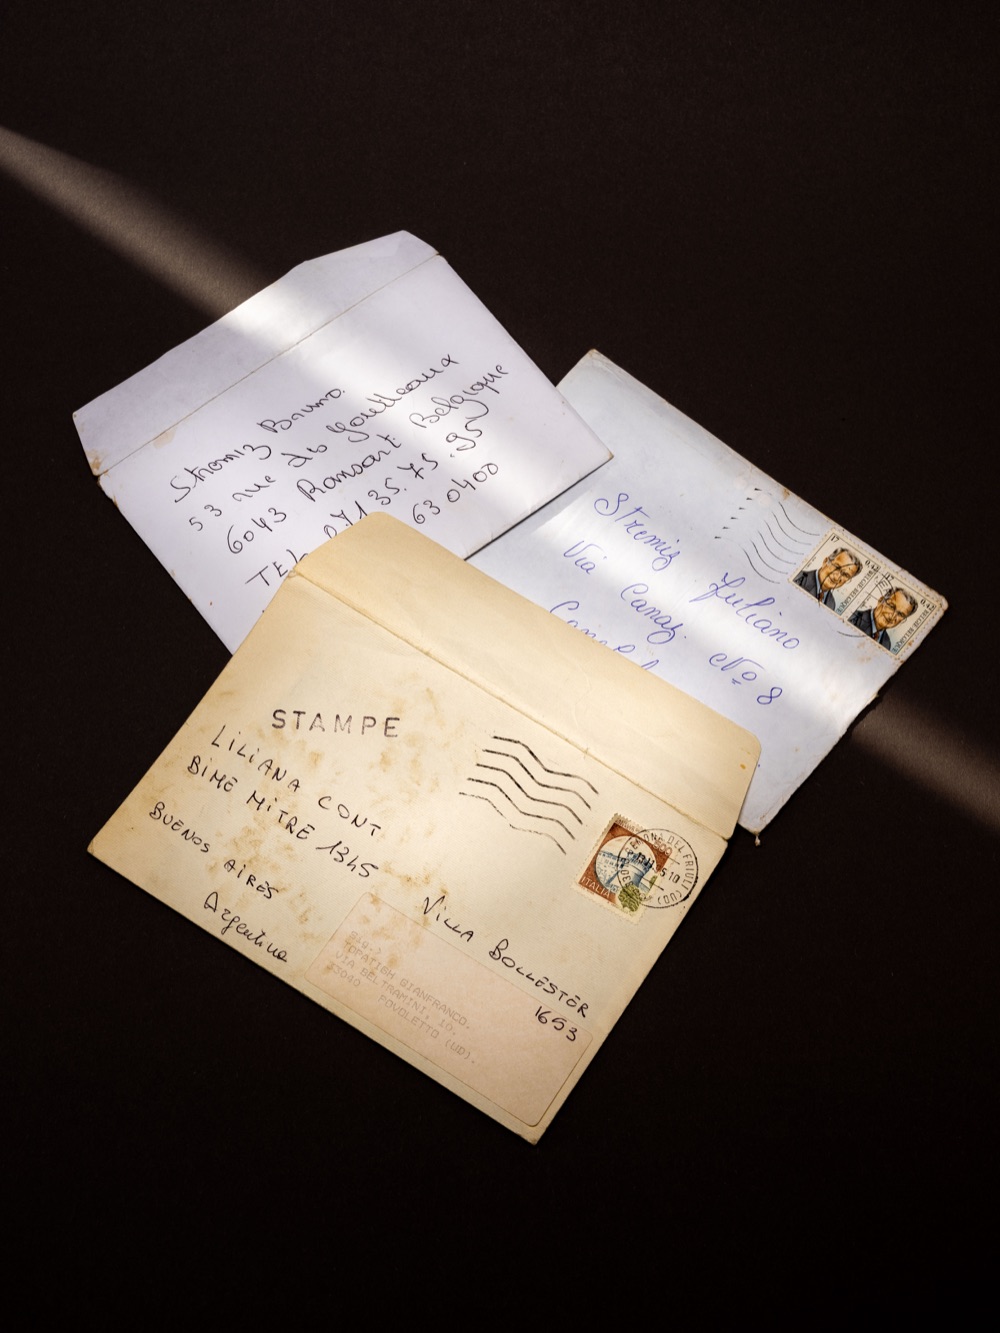 Stremiz Bruno.
53 rue des
6043 Ransart Belgique
TEL. 071 35.75.95
63 0400
Stremiz Juliano
Via Canal No 8
17
17
STAMPE
LILIANA CONT
BME MITRE 1345
BUENOS AIRES
Argentina
VILLA BOLLESTER
1653
ITALIA
DEL FRIULI
(UD)
TOPATIGH GIANFRANCO.
VIA BELTRAMINI, 10.
33040 POVOLETTO (UD).